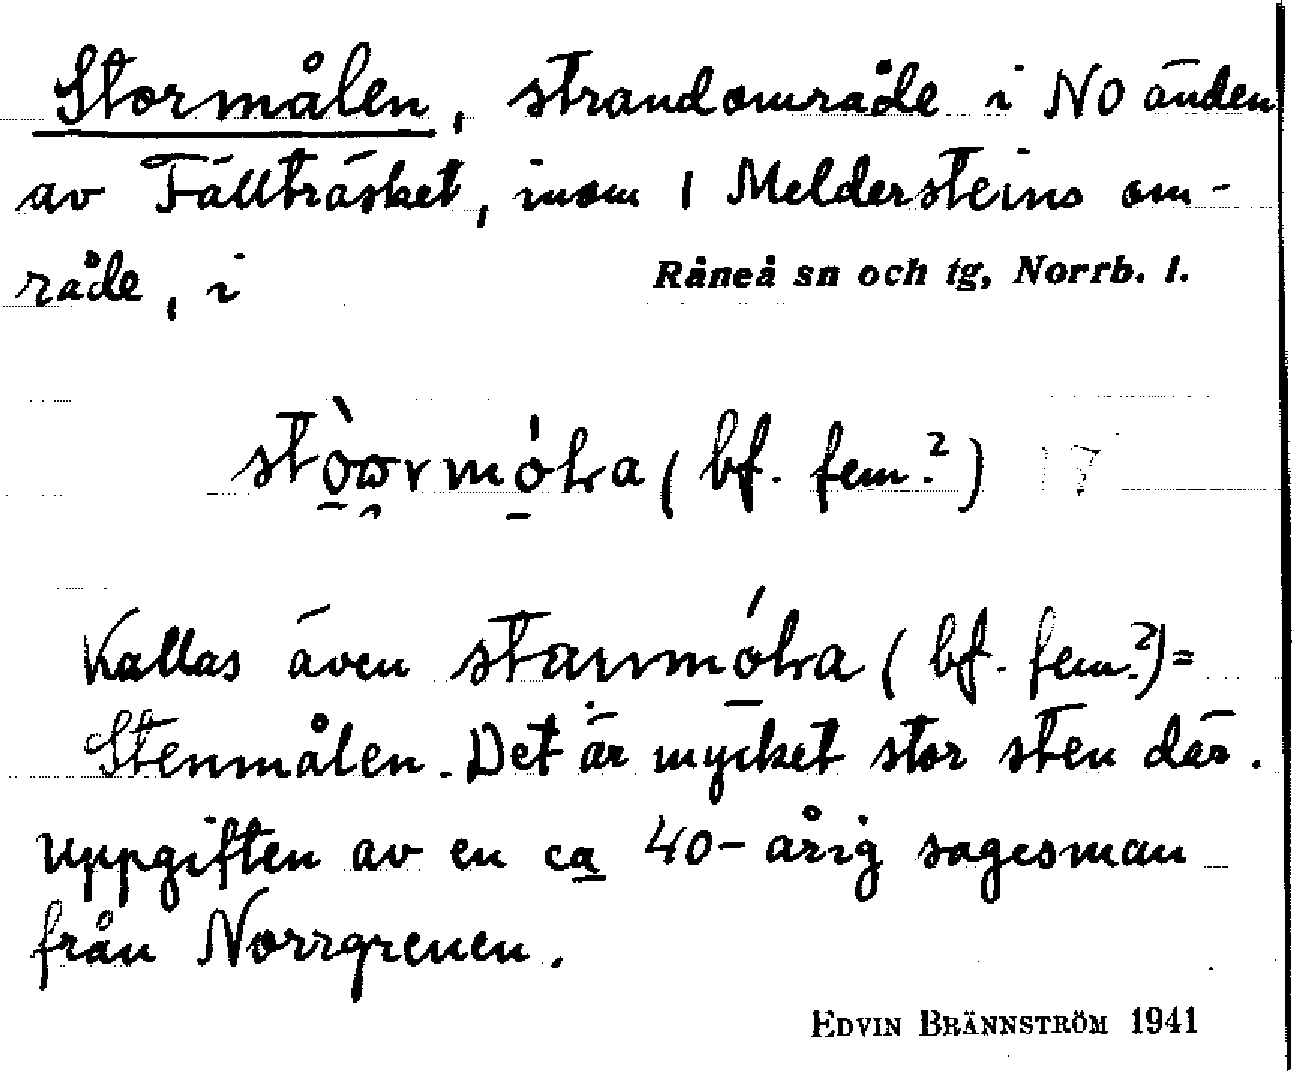 Stormålen, strandområde i NO änden
av Fällträsket, inom 1 Meldersteins om-
råde, i Råneå sn och tg, Norrb. l.
(bf. fem.?)
Kallas även (bf. fem.?) =
Stenmålen. Det är mycket stor sten där.
Uppgiften av en ca 40-årig sagesman
från Norrgrenen.
EDVIN BRÄNNSTRÖM 1941